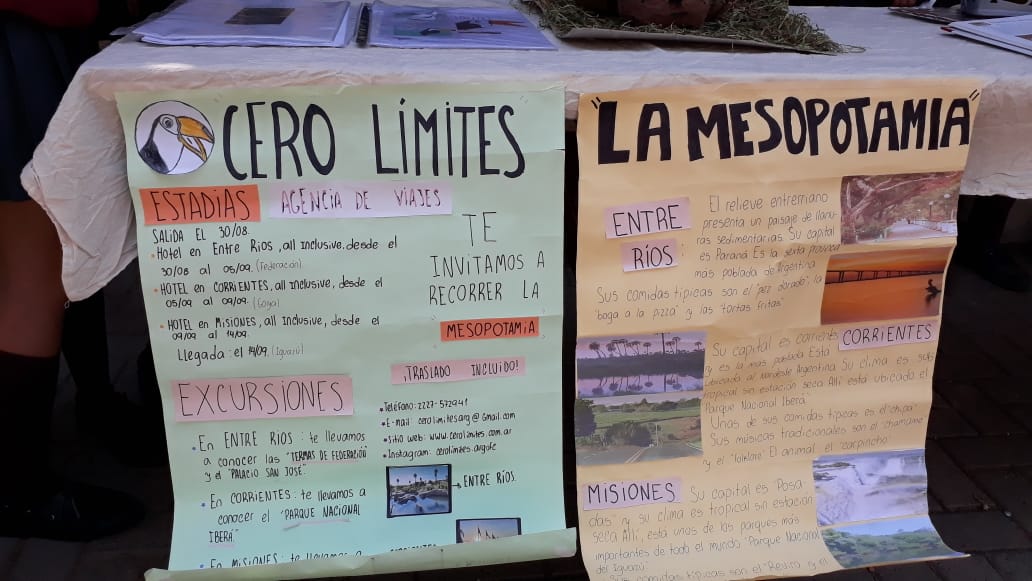 CERO LÍMITES
ESTADIAS
AGENCIA DE VIAJES
SALIDA EL 30/08.
• Hotel en Entre Rios, all Inclusive, desde el
30/08 al 05/09. (Federación)
• HOTEL en CORRIENTES, all Inclusive, desde el
05/09 al 09/09. (Goya)
• HOTEL en MISIONES, all Inclusive, desde el
09/09 al 14/09.
Llegada: el 14/09. (Iguazú)
TE
INVITAMOS A
RECORRER LA
MESOPOTAMIA
¡TRASLADO INCLUIDO!
EXCURSIONES
• En ENTRE RIOS: te llevamos
a conocer las "TERMAS DE FEDERACIÓN
y el "PALACIO SAN JOSÉ".
• En CORRIENTES: te llevamos a
conocer el "PARQUE NACIONAL
IBERÁ"
• En MISIONES: te llevamos a
• Teléfono: 2227-572941
• E-mail: cerolimitesarg@Gmail.com
• Sitio web: www.cerolimites.com.ar
• Instagram:
ENTRE RÍOS.
"LA MESOPOTAMIA"
ENTRE
RÍOS
El relieve entrerriano
presenta un paisaje de llanu-
ras sedimentarias. Su capital
es Paraná. Es la sexta provincia
más poblada de Argentina
Sus comidas típicas son el "pez dorado", la
"boga a la pizza" y las "tortas fritas"
CORRIENTES
Su capital es corrientes
y es la más poblada. Está
ubicada al Argentina. Su clima es sub
tropical sin estación seca. Allí está ubicado el
"Parque Nacional Iberá".
Unas de sus comidas típicas es el "chipa"
Sus músicas tradicionales son el "chamame"
y el "folklore". El animal el "carpincho"
MISIONES
Su capital es "Posa
das" y su clima es tropical sin estación
seca. Allí, esta unos de los parques más
importantes de todo el mundo "Parque Nacional
del Iguazú"
Sus comidas típicas son el "Reviro" y el